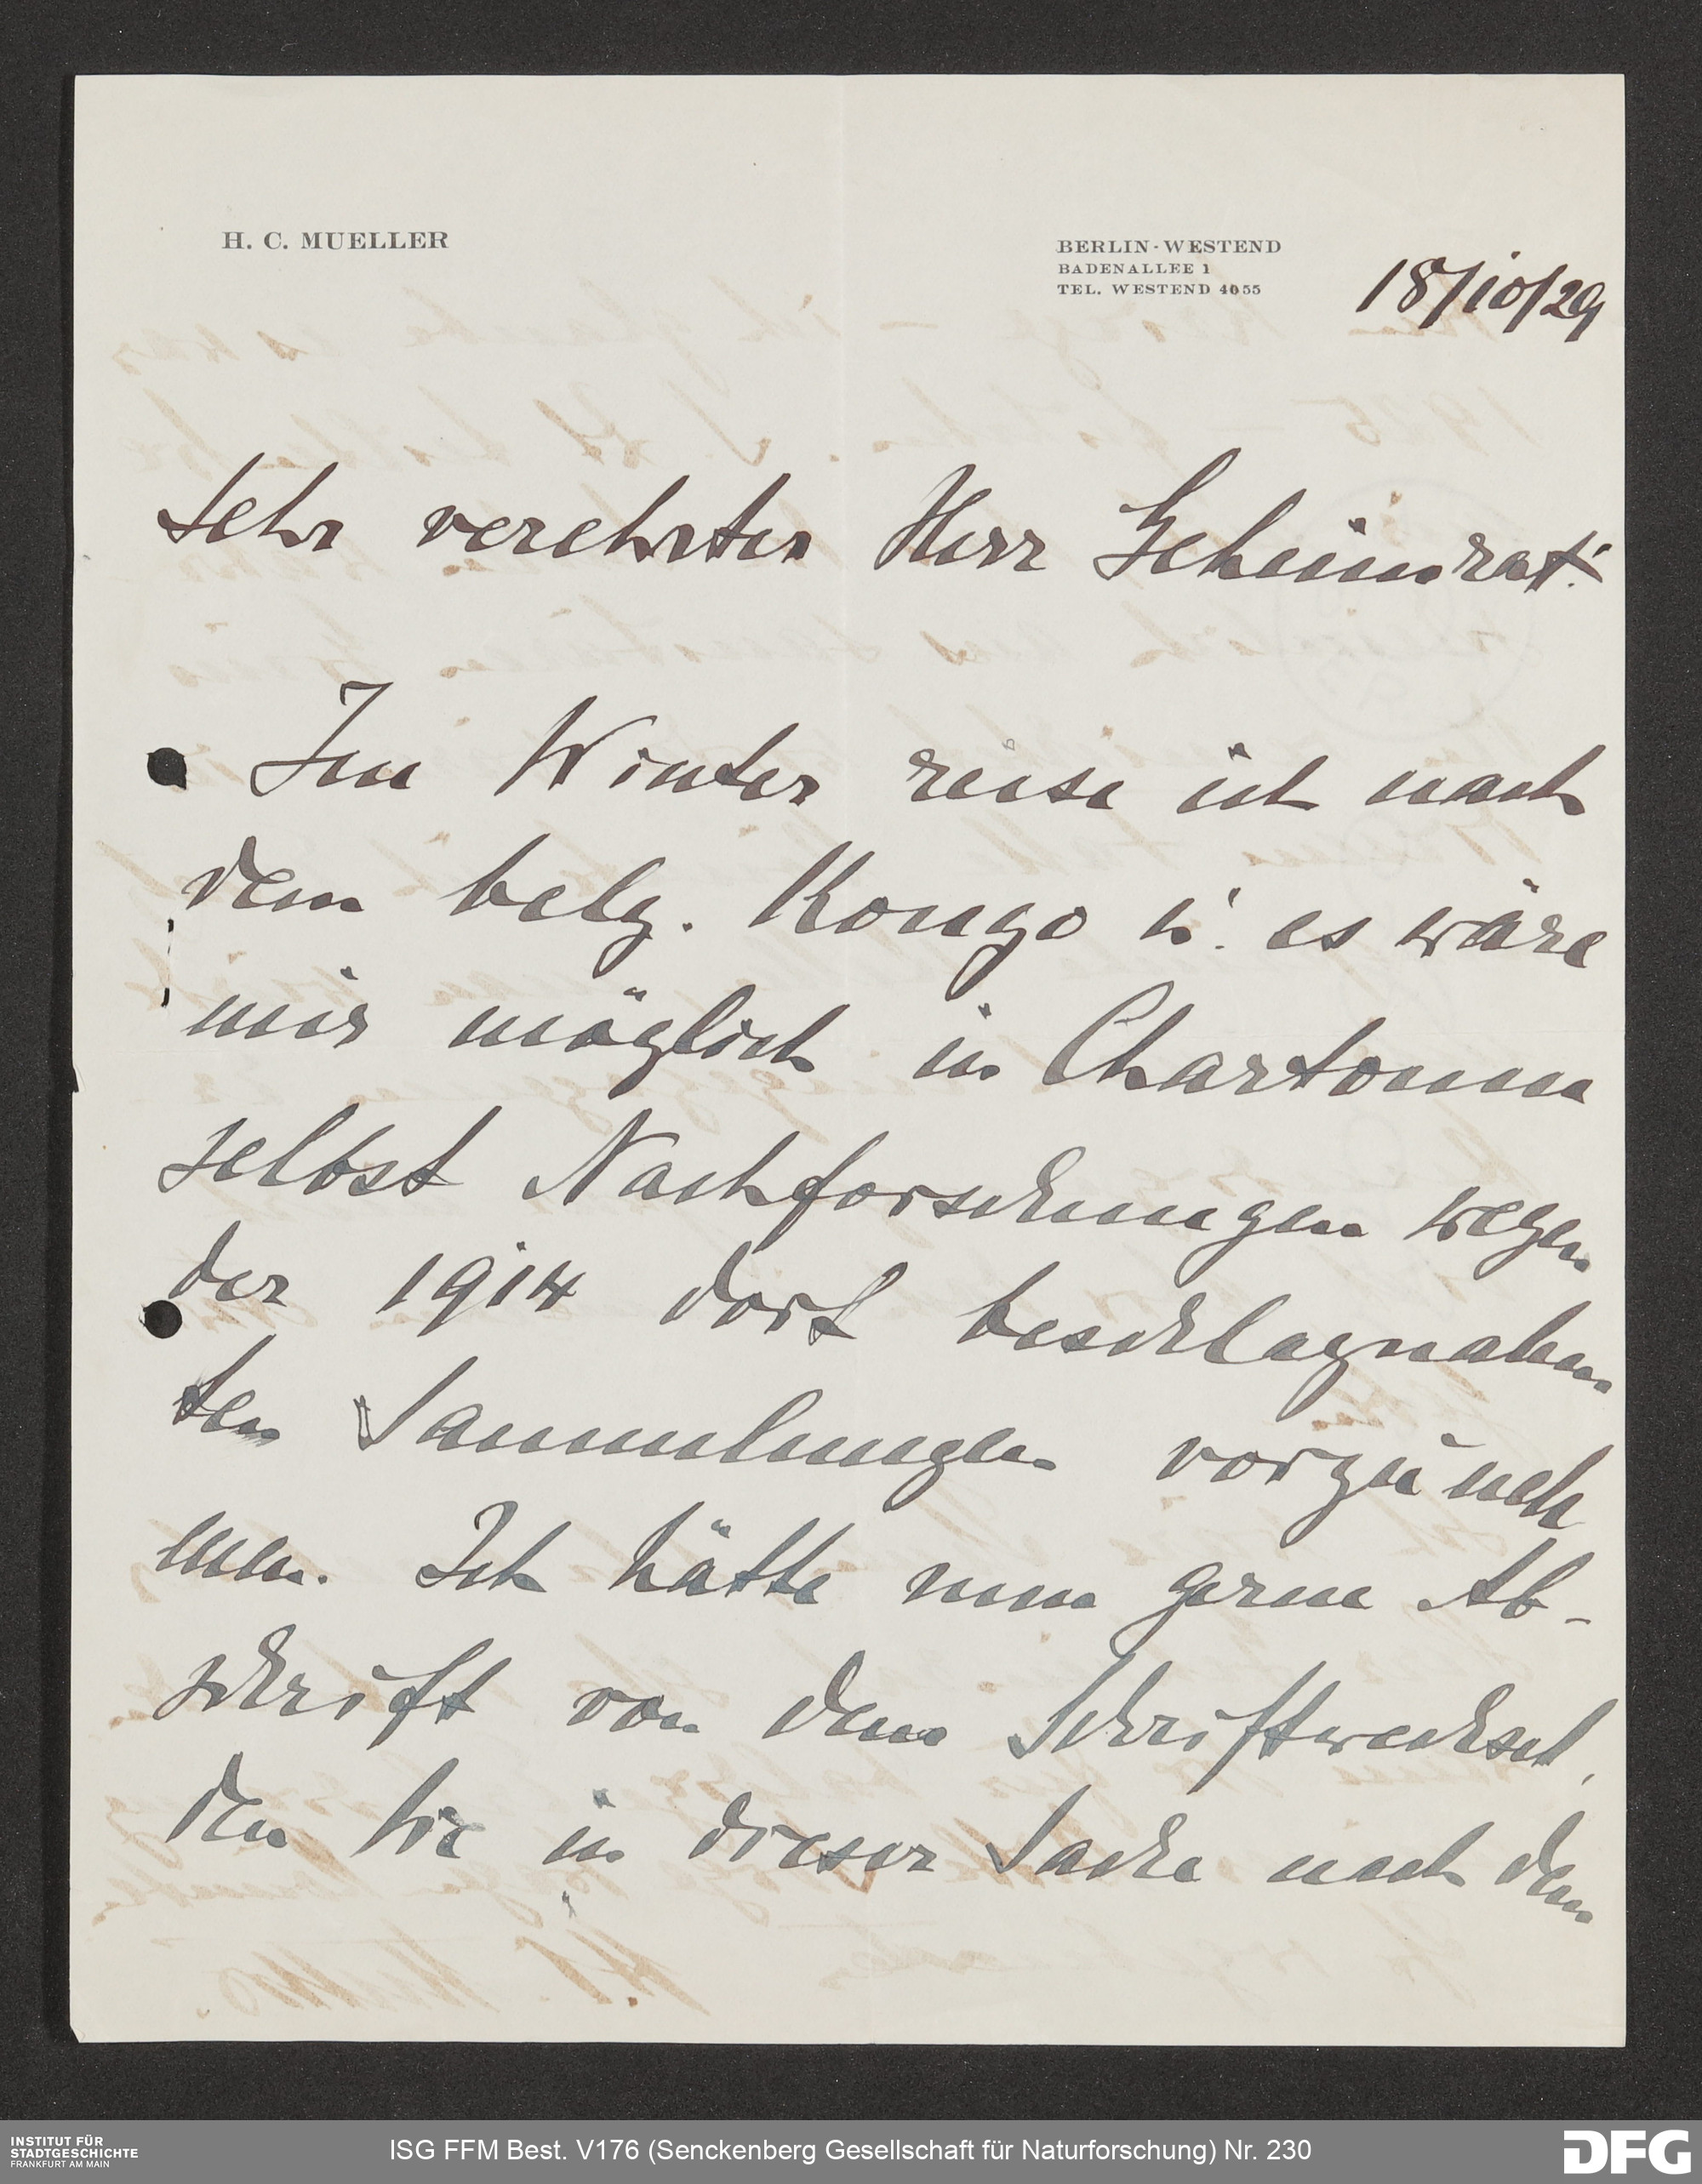 H. C. MUELLER
BERLIN-WESTEND
BADENALLEE 1
TEL. WESTEND 4055
18/10/29
Sehr verehrter Herr Geheimrat!
Im Winter reise ich nach
dem belg. Kongo u. es wäre
mir möglich in Chartoum
selbst Nachforschungen wegen
der 1914 dort beschlagnahm
ten Sammlungen vorzuneh
men. Ich hätte nun gerne Ab-
schrift von dem Schriftwechsel,
den Sie in dieser Sache nach dem
INSTITUT FÜR
STADTGESCHICHTE
FRANKFURT AM MAIN
ISG FFM Best. V176 (Senckenberg Gesellschaft für Naturforschung) Nr. 230
DFG